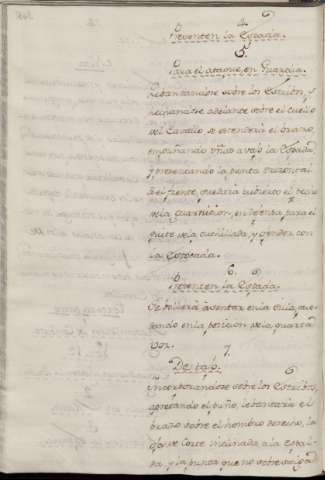 4.
Presenten la Espada.
5.
Para el ataque, en Guardia.
Lebantandose sobre los Estribos, y
reclinandose adelante sobre el cuello
del Caballo, se estenderá el brazo,
empuñando uñas abajo la Espada,
y presentando la punta
al frente, quedará cubierto el
de la guarnicion, en defensa, para el
quite de la cuchillada, y
la Estocada.
6.
Presenten la Espada.
Se bolverá à sentar en la Silla, que-
dando en la posicion de la quarta
voz.
7.
De tajo.
Incorporandose sobre los Estribos,
apretando el puño, lebantará el
brazo sobre el hombro derecho, la
oja de corte inclinada a la Espal-
da, y la punta que no